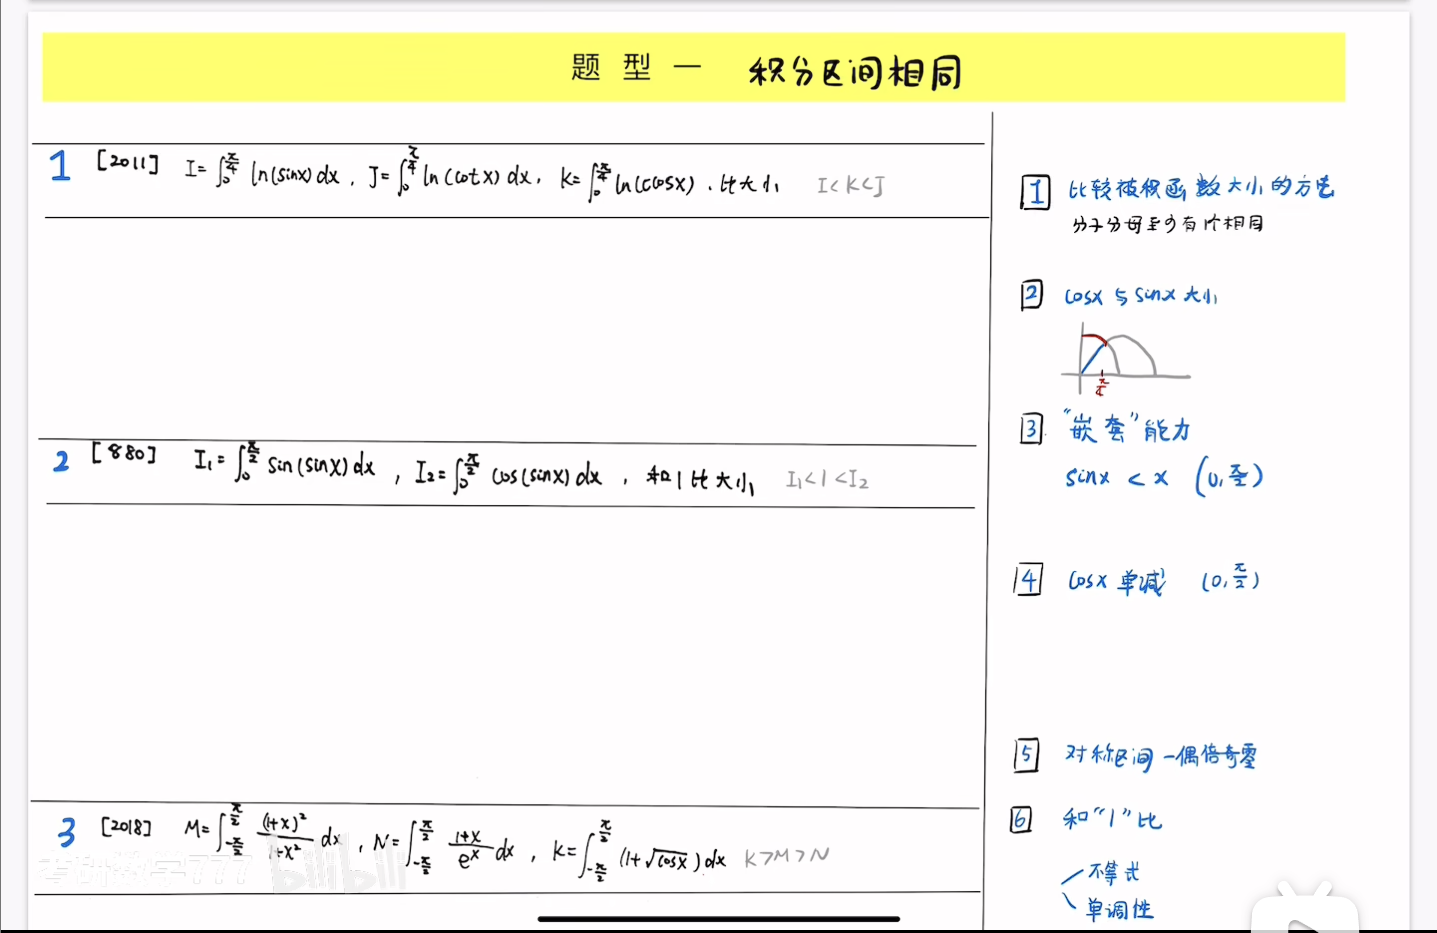 题 型 一 积分区间相同
1 [2011] I=∫₀^{π/4} ln(sinx)dx , J=∫₀^{π/4} ln(cotx)dx, K=∫₀^{π/4} ln(cosx) . 比大小 I<K<J
2 [880] I₁=∫₀^{π/2} sin(sinx)dx , I₂=∫₀^{π/2} cos(sinx)dx , 和1比大小 I₁<1<I₂
3 [2018] M=∫_{-π/2}^{π/2} (1+x)²/1+x² dx , N=∫_{-π/2}^{π/2} 1+x/eˣ dx , K=∫_{-π/2}^{π/2} (1+√cosx)dx K>M>N
考研数学777 bilibili
1 比较被积函数大小的方法
分子分母至少有1个相同
2 cosx 与 sinx 大小
π/4
3 “嵌套”能力
sinx < x (0,π/2)
4 cosx 单减 (0,π/2)
5 对称区间-偶倍奇零
6 和“1”比
不等式
单调性